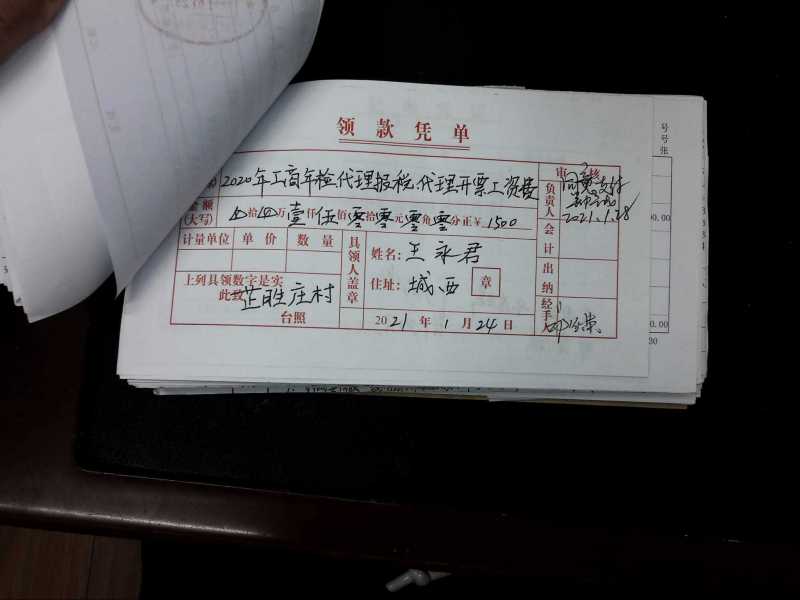 领款凭单
2020年工商年检代理报税、代理开票工资费
金额(大写) 拾 万壹仟伍佰零拾零元零角零分正￥1500
计量单位 单价 数量
上列具领数字是实
此致 庄村
台照
具领人盖章
姓名: 王永君
住址: 城西 章
2021年1月24日
审核
负责人 同意支付
2021.1.28
会计
出纳
经手人
号
号
张